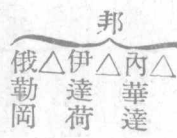 邦
△
內華達
△
伊達荷
△
俄勒岡